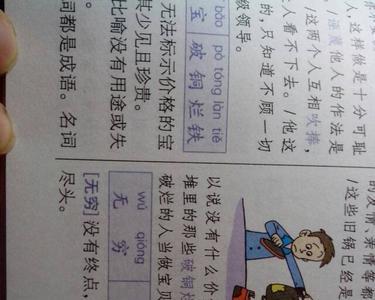 人这样做是十分可耻
他人的作法是
/这两个人互相吹捧，
人看不下去。/他这
的，只知道不顾一切
级领导。
bǎo pò tóng làn tiě
宝 破铜烂铁
无法标示价格的宝
其少见且珍贵。
比喻没有用途或失
词都是成语。名词
的友情、亲情等都
/这些旧锅已经是
以说没有什么价
堆里的那些破铜烂
破烂的人当做宝贝
wú qióng
无穷
[无穷]没有终点，
尽头。